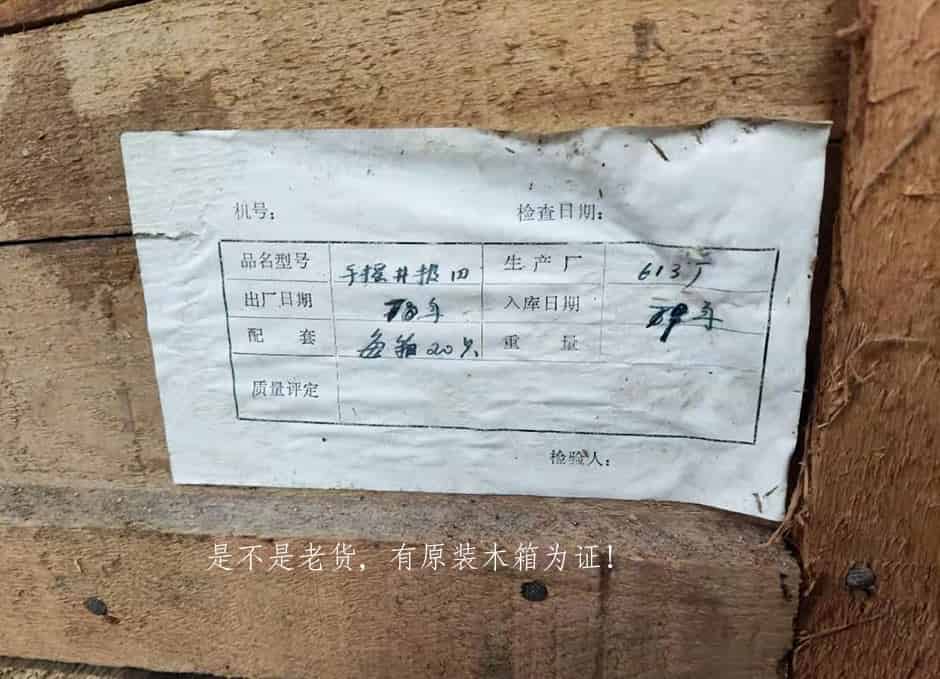 机号： 检查日期：
品名型号 手摇井报旧 生产厂 613厂
出厂日期 78年 入库日期 89年
配套 每箱20只 重量
质量评定
检验人：
是不是老货，有原装木箱为证！